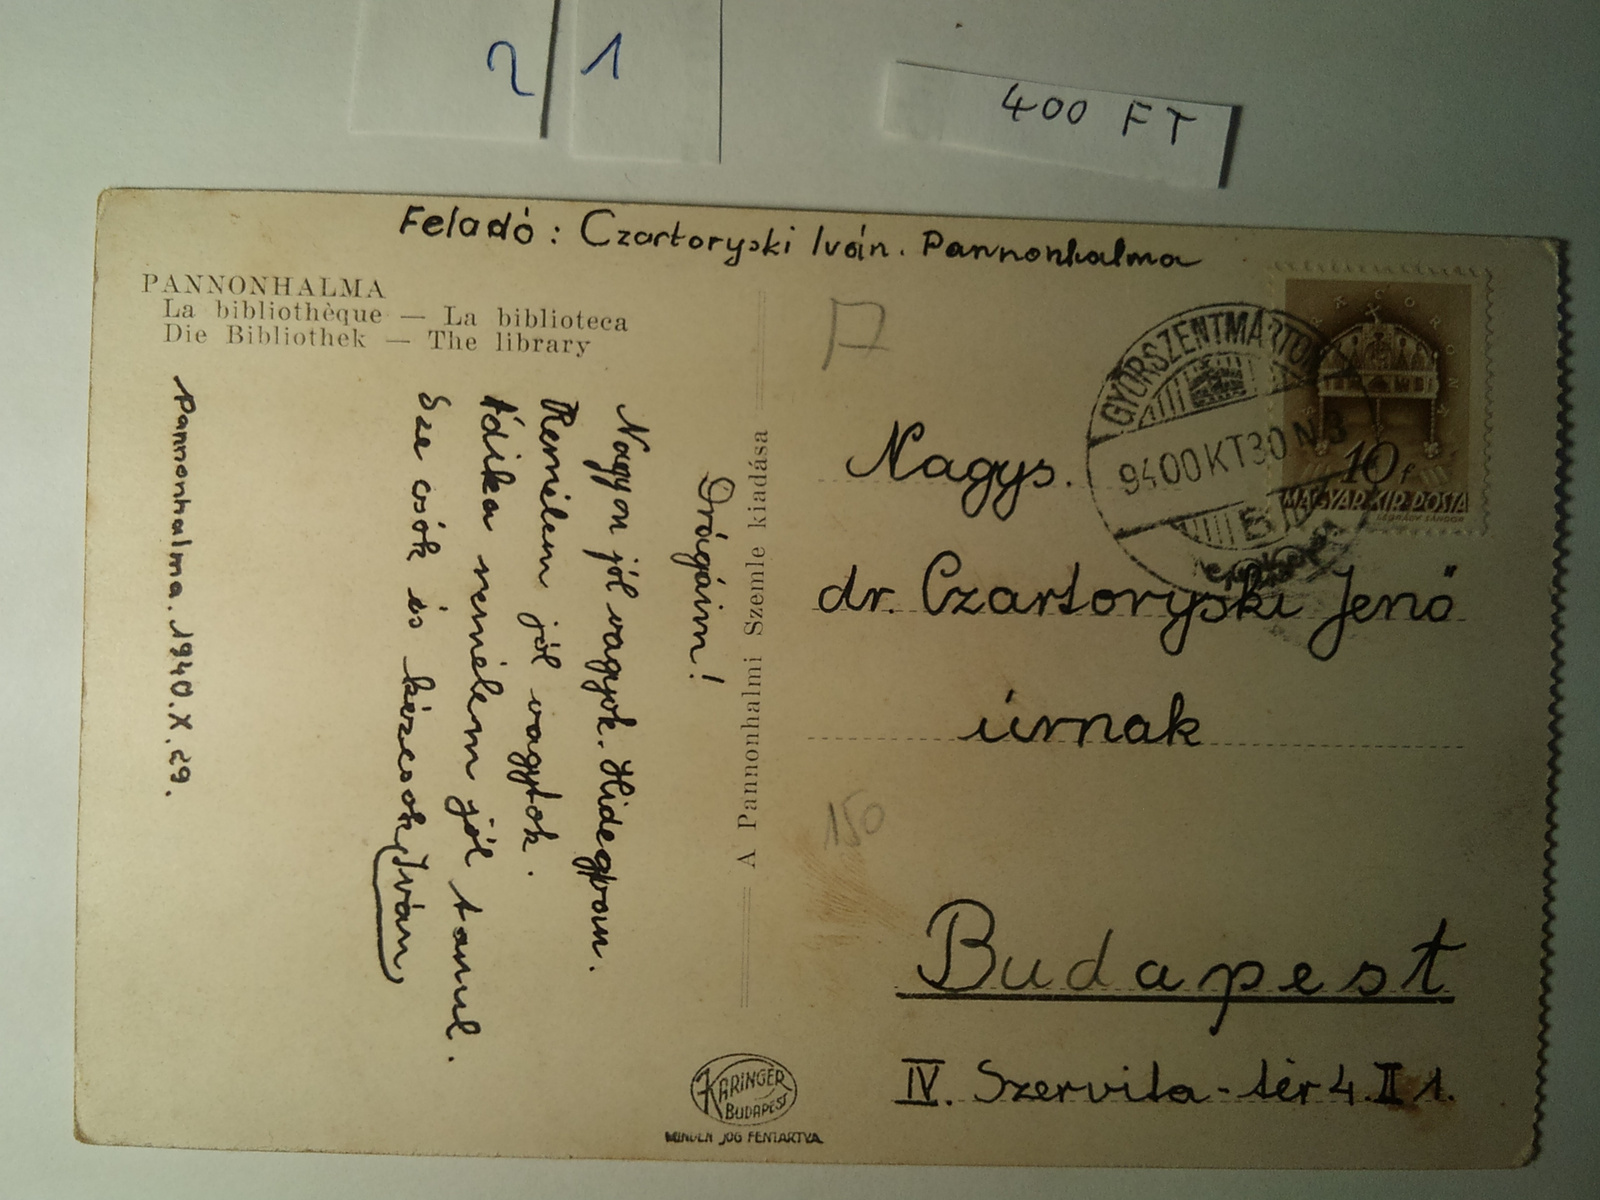 21
400 FT
Feladó: Czartoryski Iván. Pannonhalma
PANNONHALMA
La bibliothèque — La biblioteca
Die Bibliothek — The library
Drágáim!
Nagyon jól vagyok. Hidegvan.
Remélem jól vagytok.
Ádika remélem jól tanul.
Sze csók és kézcsók Iván
Pannonhalma. 1940.X.29.
A Pannonhalmi Szemle kiadása
GYŐRSZENTMÁRTON
9400KT30 N 8
10f
MAGYAR KIR POSTA
LÉGRÁDY SÁNDOR
Nagys.
dr. Czartoryski Jenő
úrnak
150
Budapest
IV. Szervita-tér 4. II 1.
KARINGER
BUDAPEST
MINDEN JOG FENTARTVA